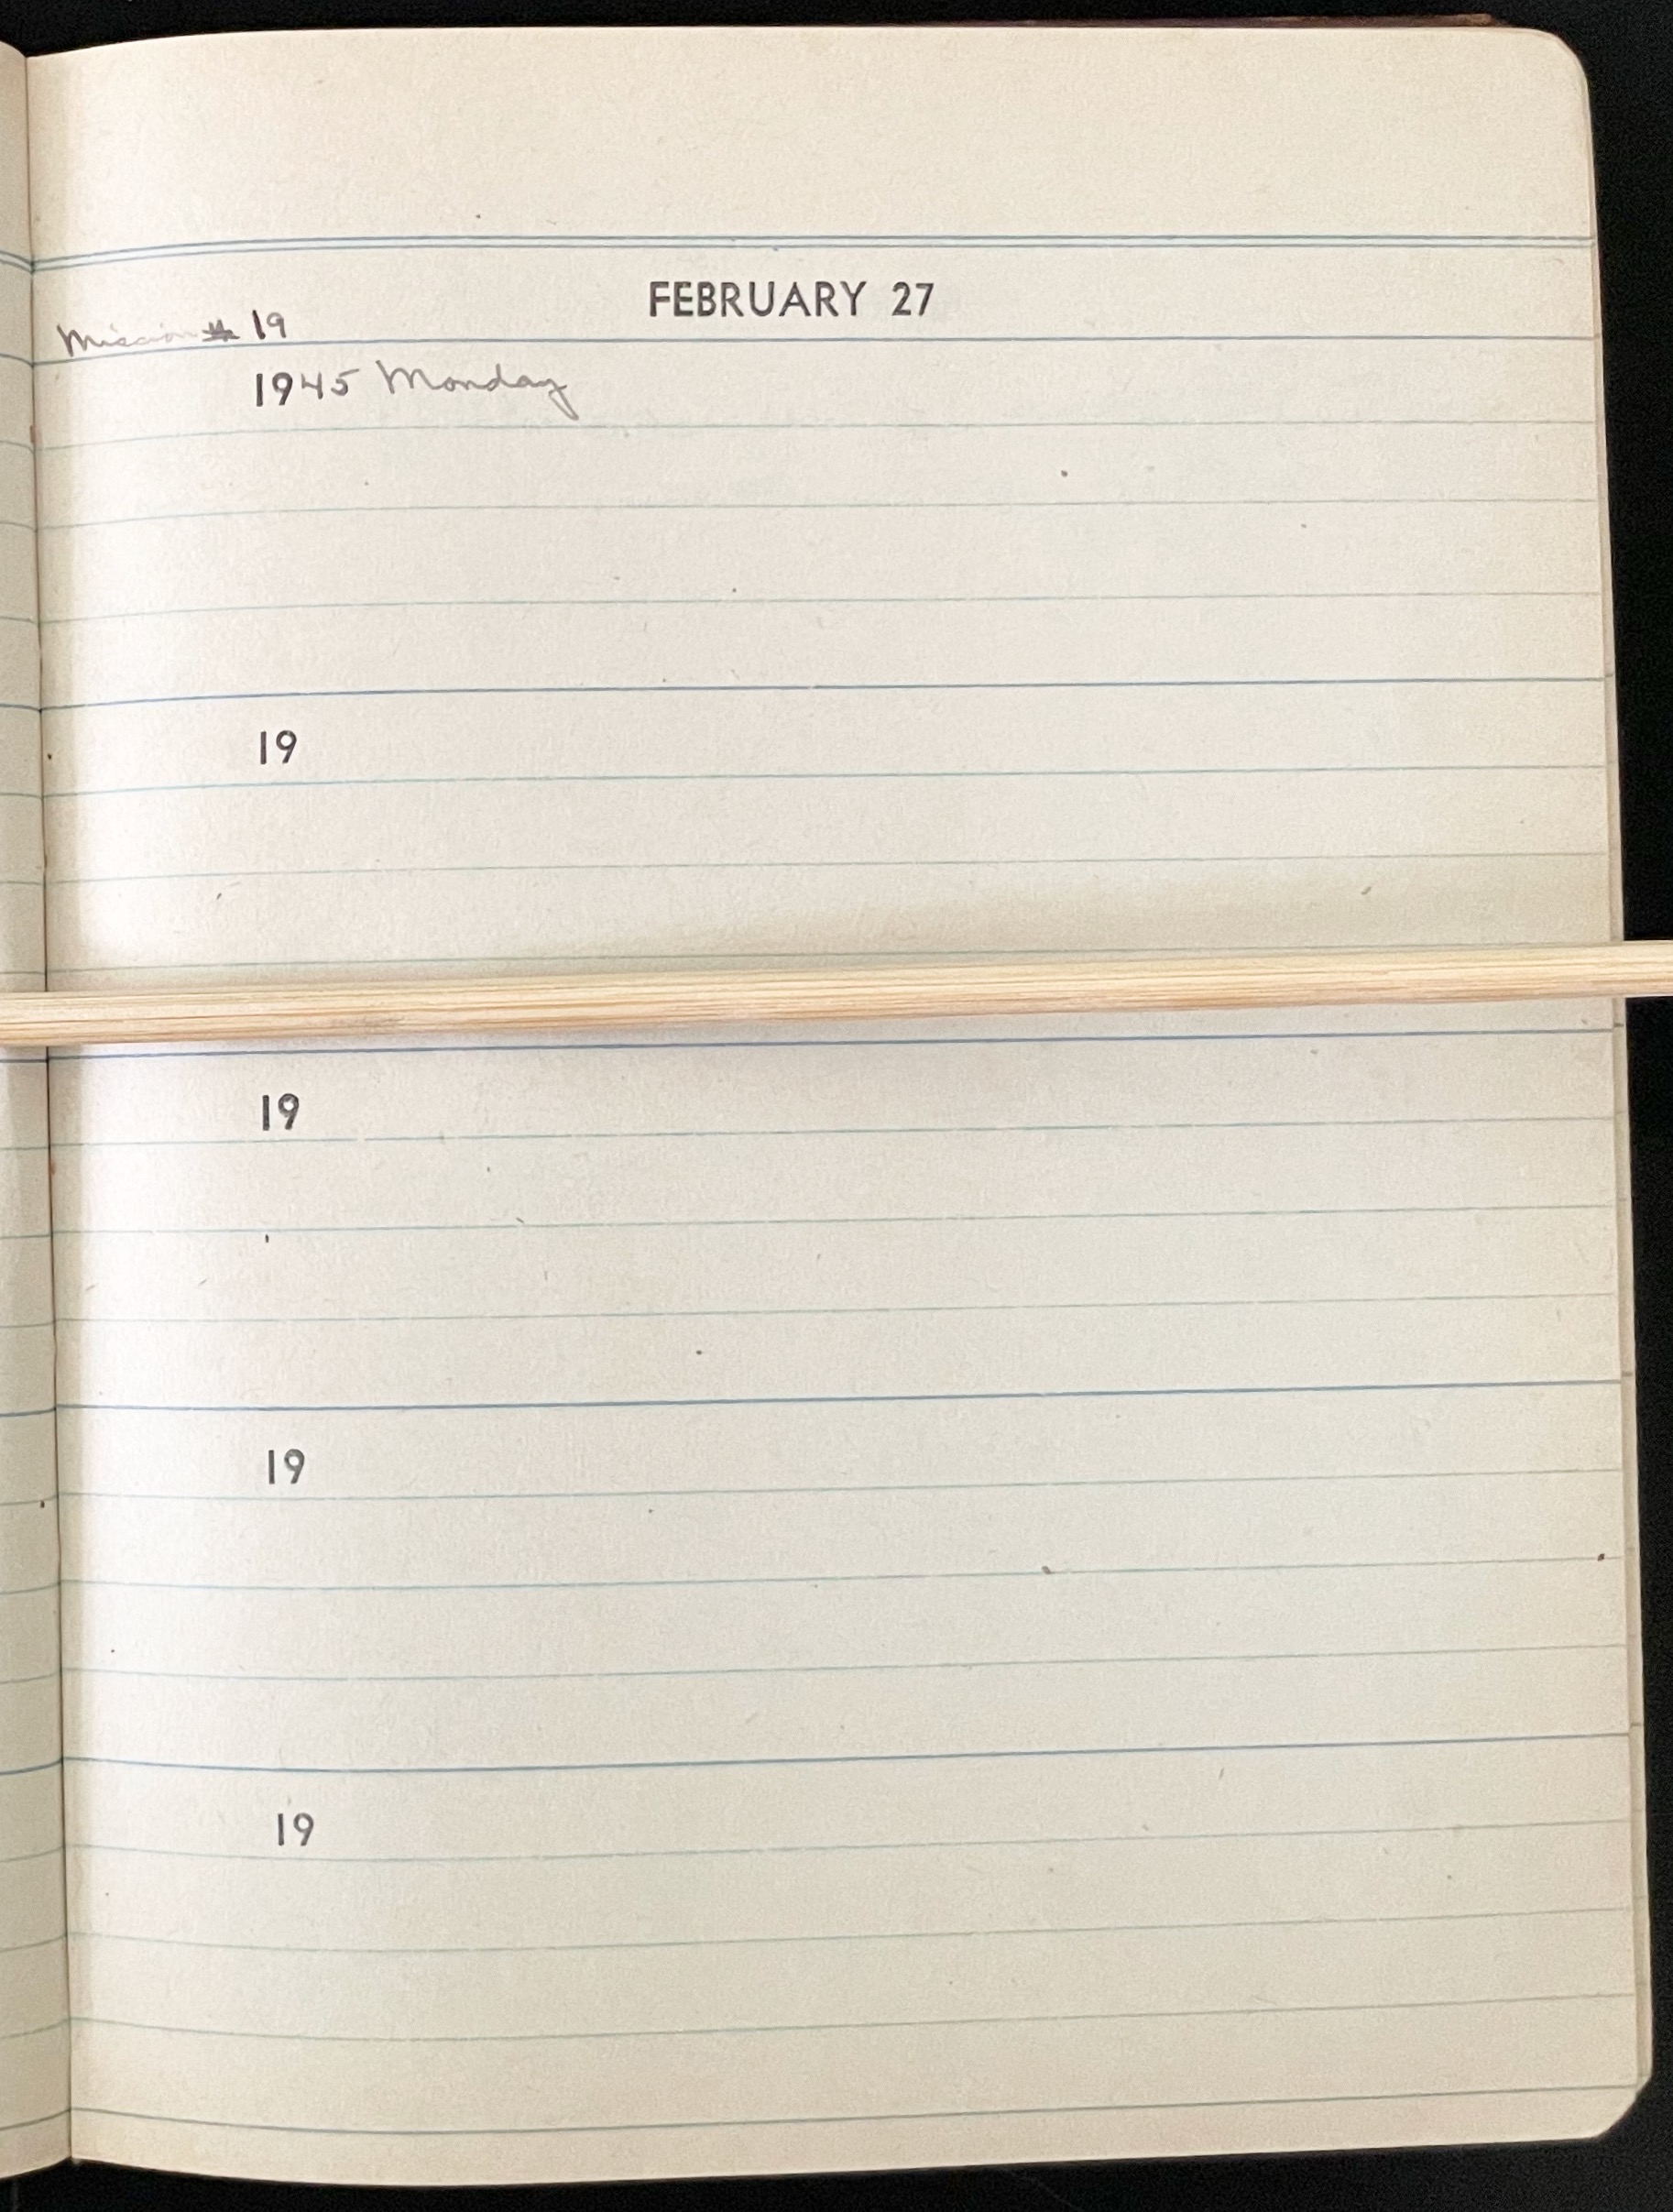 FEBRUARY 27
Mission # 19
1945 Monday
19
19
19
19